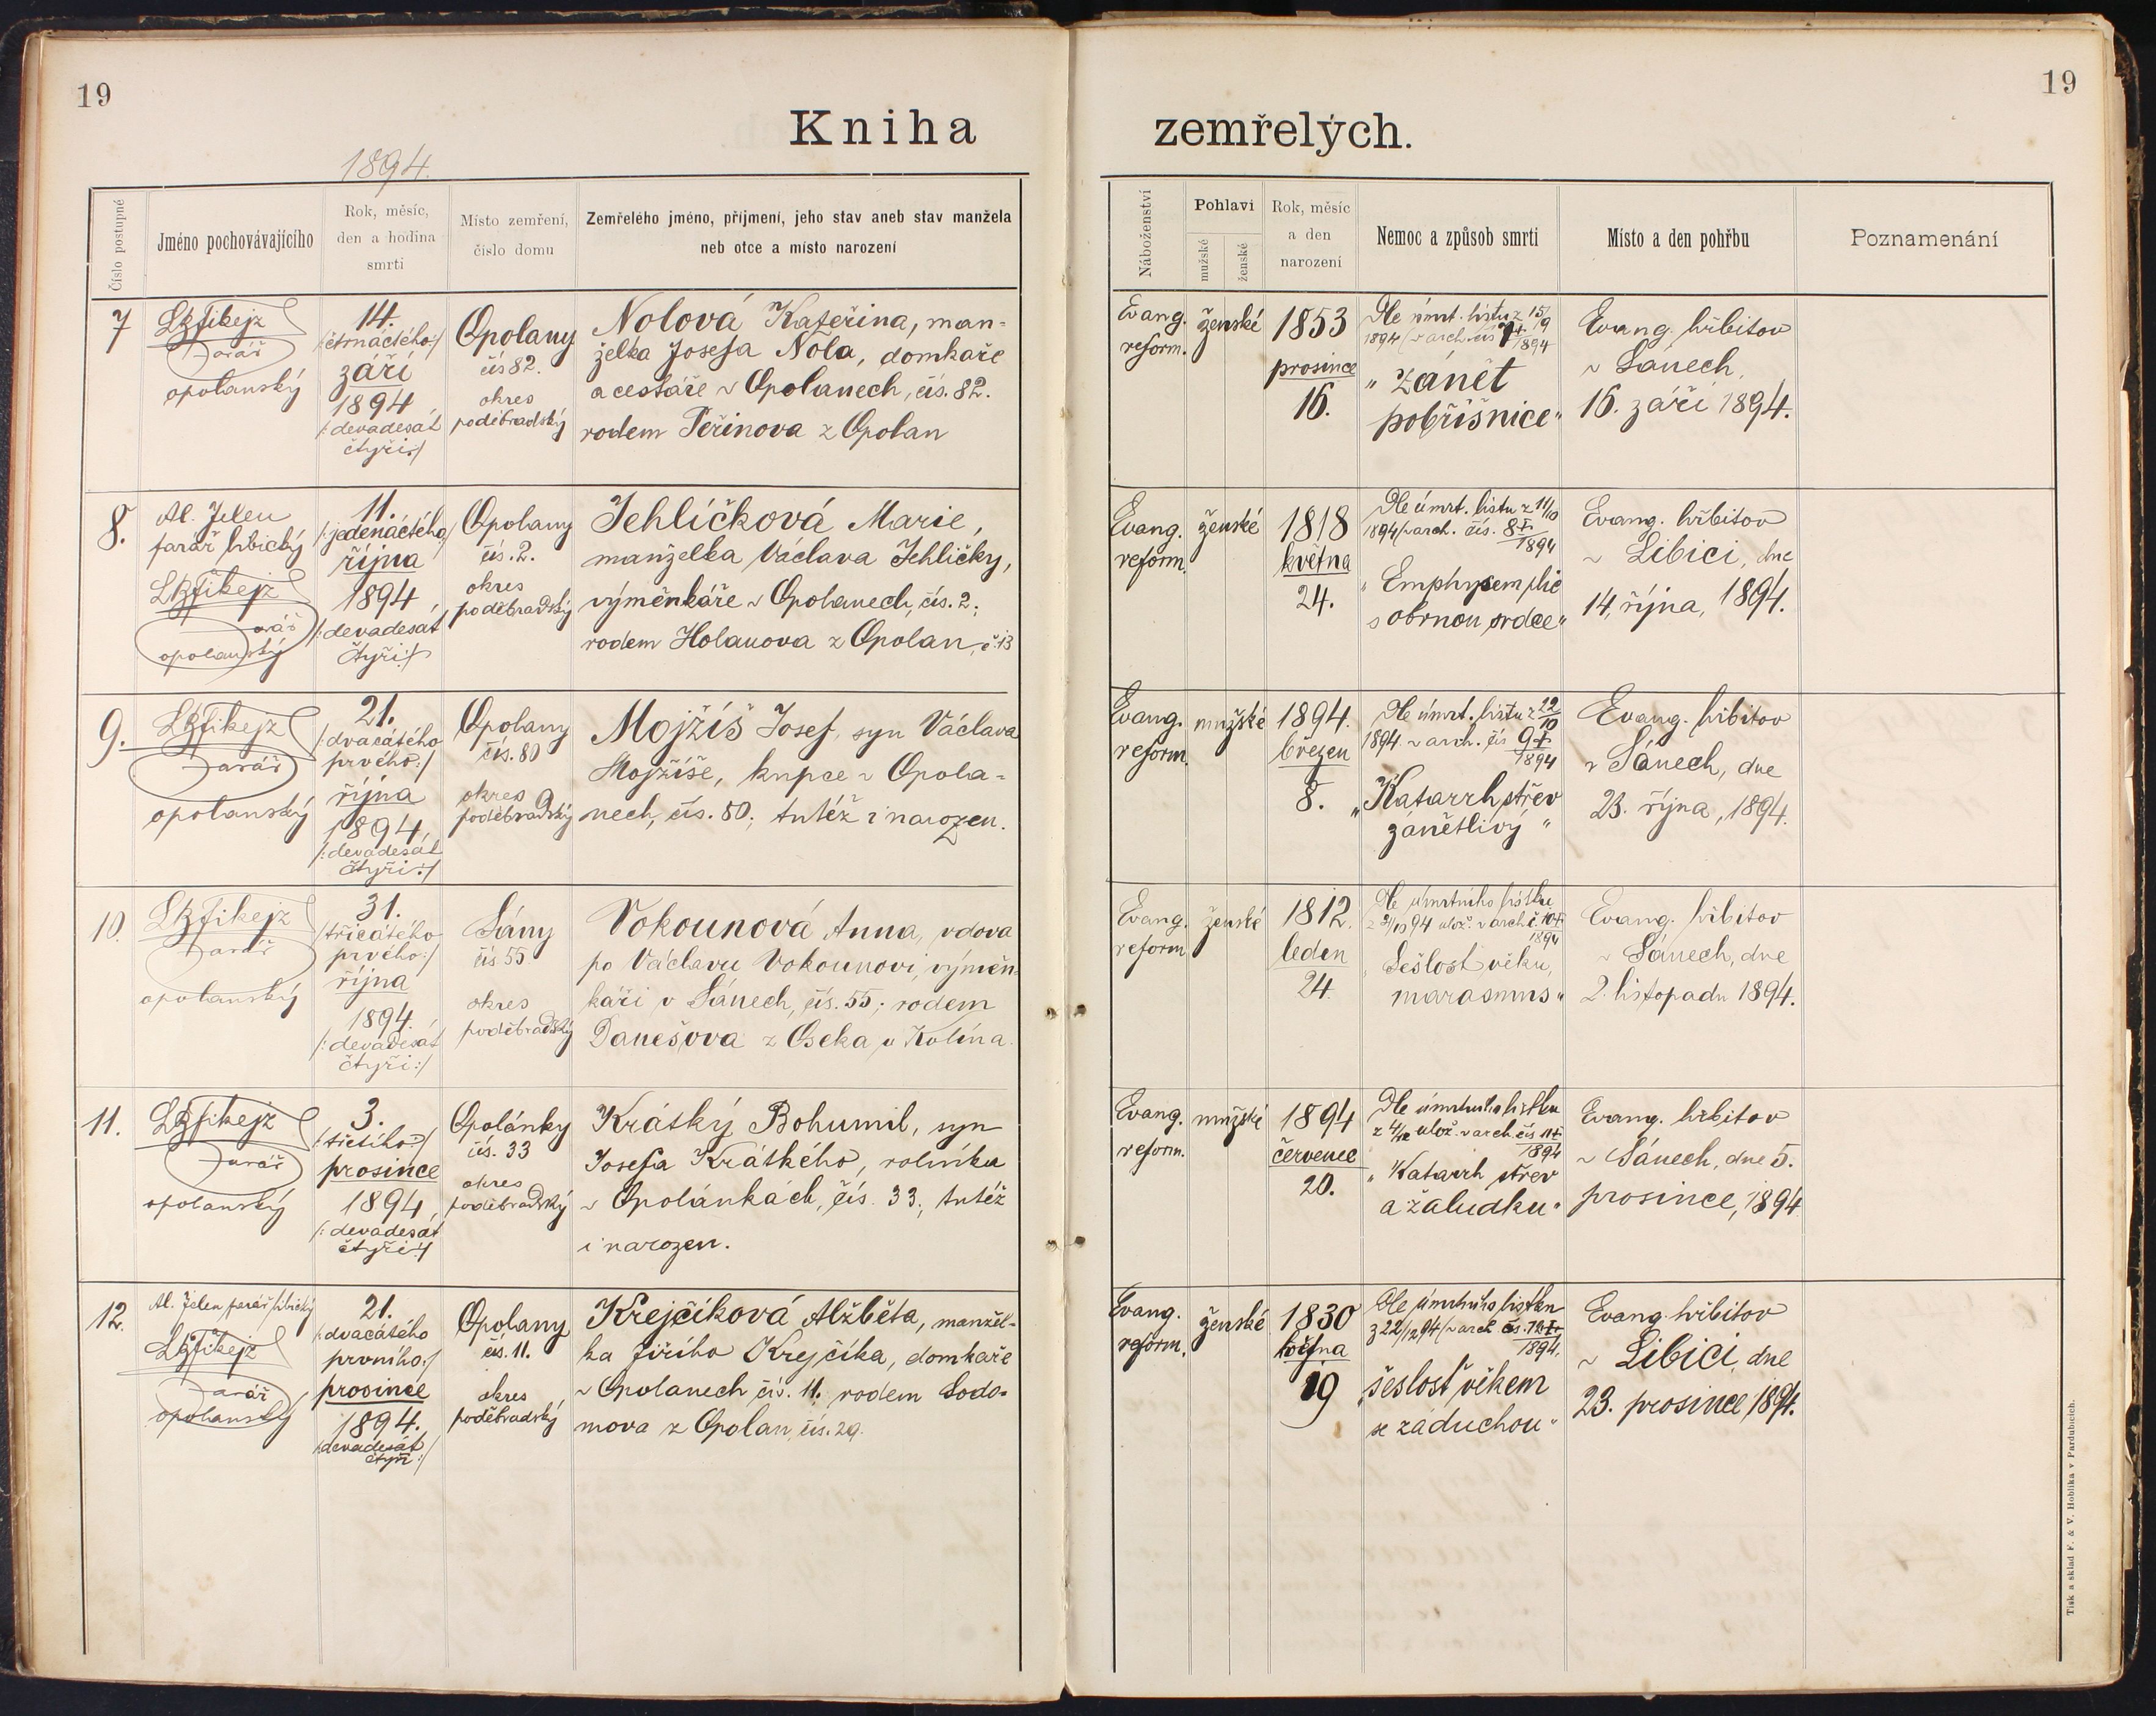 19
19
Kniha zemřelých.
1894.
Číslo postupné
Jméno pochovávajícího
Rok, měsíc,
den a hodina
smrti
Místo zemření,
číslo domu
Zemřelého jméno, příjmení, jeho stav aneb stav manžela
neb otce a místo narození
Náboženství
Pohlaví
mužské
ženské
Rok, měsíc
a den
narození
Nemoc a způsob smrti
Místo a den pohřbu
Poznamenání
7
LBFikejz
farář
opolanský
14.
/:čtrnáctého:/
září
1894
/:devadesát
čtyři:/
Opolany
čís 82.
okres
poděbradský
Nolová Kateřina, man-
želka Josefa Nola, domkaře
a cestáře v Opolanech, čís. 82.
rodem Peřinova z Opolan
Evang.
reform.
ženské
1853
prosince
16.
Dle úmrt. listu z 15/9
1894 /v arch. čís 7+/1894
„Zánět
pobřišnice"
Evang. hřbitov
v Sánech,
16. září 1894.
8.
Al. Jelen
farář libický
LBFikejz
farář
opolanský
11.
/:jedenáctého/
října
1894
/:devadesát
čtyři:/
Opolany
čís. 2.
okres
poděbradský
Jehlíčková Marie,
manželka Václava Jehličky,
výměnkáře v Opolanech, čís. 2;
rodem Holanova z Opolan, č. 13
Evang.
reform.
ženské
1818
května
24.
Dle úmrt. listu z 11/10
1894/v arch. čís. 8+/1894
„Emphysem plic
s obrnou srdce"
Evang. hřbitov
v Libici, dne
14. října, 1894.
9.
LBFikejz
farář
opolanský
21.
/:dvacátého
prvého:/
října
1894,
/:devadesát
čtyři:/
Opolany
čís. 80
okres
poděbradský
Mojžíš Josef, syn Václava
Mojžíše, kupce v Opola-
nech, čís. 80; tutéž i narozen.
Evang.
reform.
mužské
1894.
březen
8.
Dle úmrt. listu z 22/10
1894 v arch. čís 9+/1894
„Katarrh střev
zánětlivý"
Evang. hřbitov
v Sánech, dne
23. října, 1894.
10.
LBFikejz
farář
opolanský
31.
/třicátého
prvého:/
října
1894.
/:devadesát
čtyři:/
Sány
čís 55
okres
poděbradský
Vokounová Anna, vdova
po Václavu Vokounovi, výměn-
káři v Sánech, čís. 55; rodem
Danešova z Oseka u Kolína.
Evang.
reform
ženské
1812.
leden
24.
Dle úmrtního lístku
z 31/10 94 ulož. v arch. č. 10+/1894
„Sešlost věku,
marasmus"
Evang. hřbitov
v Sánech, dne
2. listopadu 1894.
11.
LBFikejz
farář
opolanský
3.
/:třetího:/
prosince
1894,
/:devadesát
čtyři:/
Opolánky
čís. 33
okres
poděbradský
Krátký Bohumil, syn
Josefa Krátkého, rolníka
v Opolánkách, čís. 33; tutéž
i narozen.
Evang.
reform.
mužské
1894
červenec
20.
Dle úmrtního lístku
z 4/12 ulož. v arch. čís 11+/1894
„Katarrh střev
a žaludku"
Evang. hřbitov
v Sánech, dne 5.
prosince, 1894
12.
Al. Jelen farář libický
LBFikejz
farář
opolanský
21.
/:dvacátého
prvního:/
prosince
1894.
/:devadesát
čtyři:/
Opolany
čís. 11.
okres
poděbradský
Krejčíková Alžběta, manžel-
ka Jiřího Krejčíka, domkaře
v Opolanech čís. 11. rodem Sodo-
mova z Opolan, čís. 29.
Evang.
reform.
ženské
1830
19
Dle úmrtního lístku
z 22/12 94/v arch čís. 12+/1894.
„sešlost věkem
se záduchou"
Evang. hřbitov
v Libici, dne
23. prosince 1894.
Tisk a sklad F. & V. Hoblíka v Pardubicích.